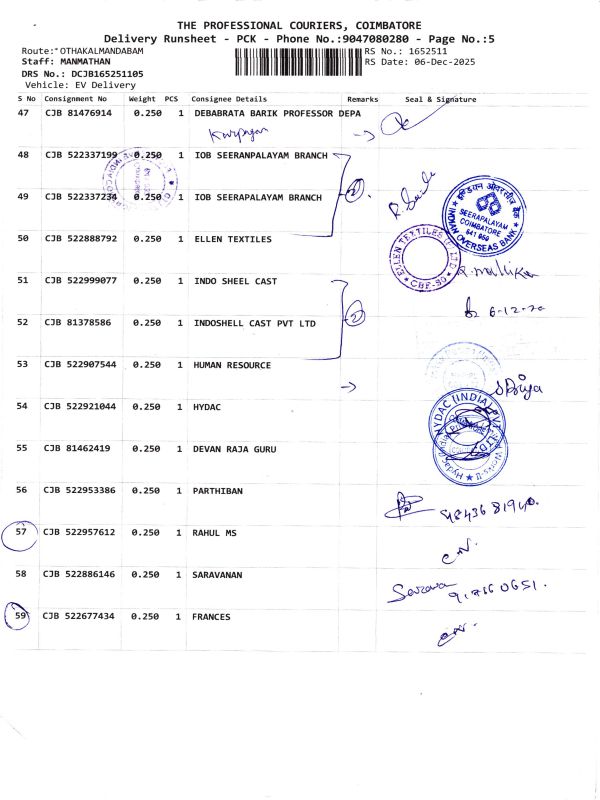 THE PROFESSIONAL COURIERS, COIMBATORE
Delivery Runsheet - PCK - Phone No.:9047080280 - Page No.:5
Route:" OTHAKALMANDABAM
RS No.: 1652511
Staff: MANMATHAN
RS Date: 06-Dec-2025
DRS No.: DCJB165251105
Vehicle: EV Delivery
S No Consignment No Weight PCS Consignee Details Remarks Seal & Signature
47 CJB 81476914 0.250 1 DEBABRATA BARIK PROFESSOR DEPA
48 CJB 522337199 0.250 1 IOB SEERANPALAYAM BRANCH
49 CJB 522337234 0.250 1 IOB SEERAPALAYAM BRANCH
2
इण्डियन ओवरसीज़ बैंक
SEERAPALAYAM
COIMBATORE
641 050
INDIAN OVERSEAS BANK
50 CJB 522888792 0.250 1 ELLEN TEXTILES
ELLEN TEXTILES (P) LTD
CBE-50
R. mallika
51 CJB 522999077 0.250 1 INDO SHEEL CAST
52 CJB 81378586 0.250 1 INDOSHELL CAST PVT LTD
2
53 CJB 522907544 0.250 1 HUMAN RESOURCE
54 CJB 522921044 0.250 1 HYDAC
HYDAC (INDIA) PVT
55 CJB 81462419 0.250 1 DEVAN RAJA GURU
56 CJB 522953386 0.250 1 PARTHIBAN
9843681940.
57 CJB 522957612 0.250 1 RAHUL MS
58 CJB 522886146 0.250 1 SARAVANAN
59 CJB 522677434 0.250 1 FRANCES